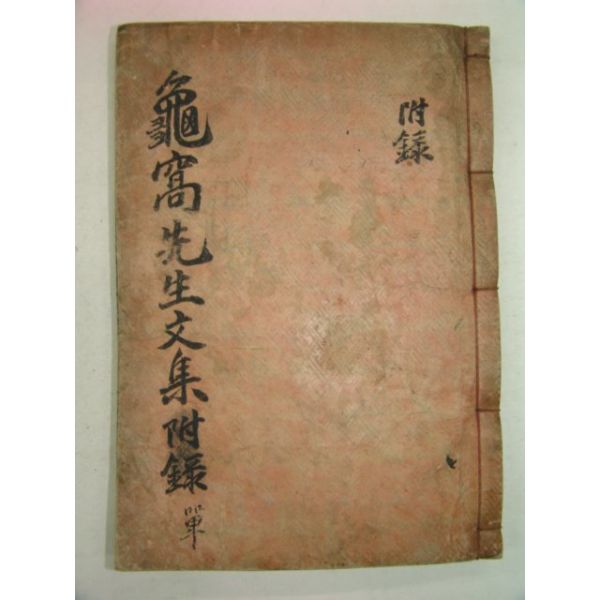 附錄
龜窩先生文集附錄 單